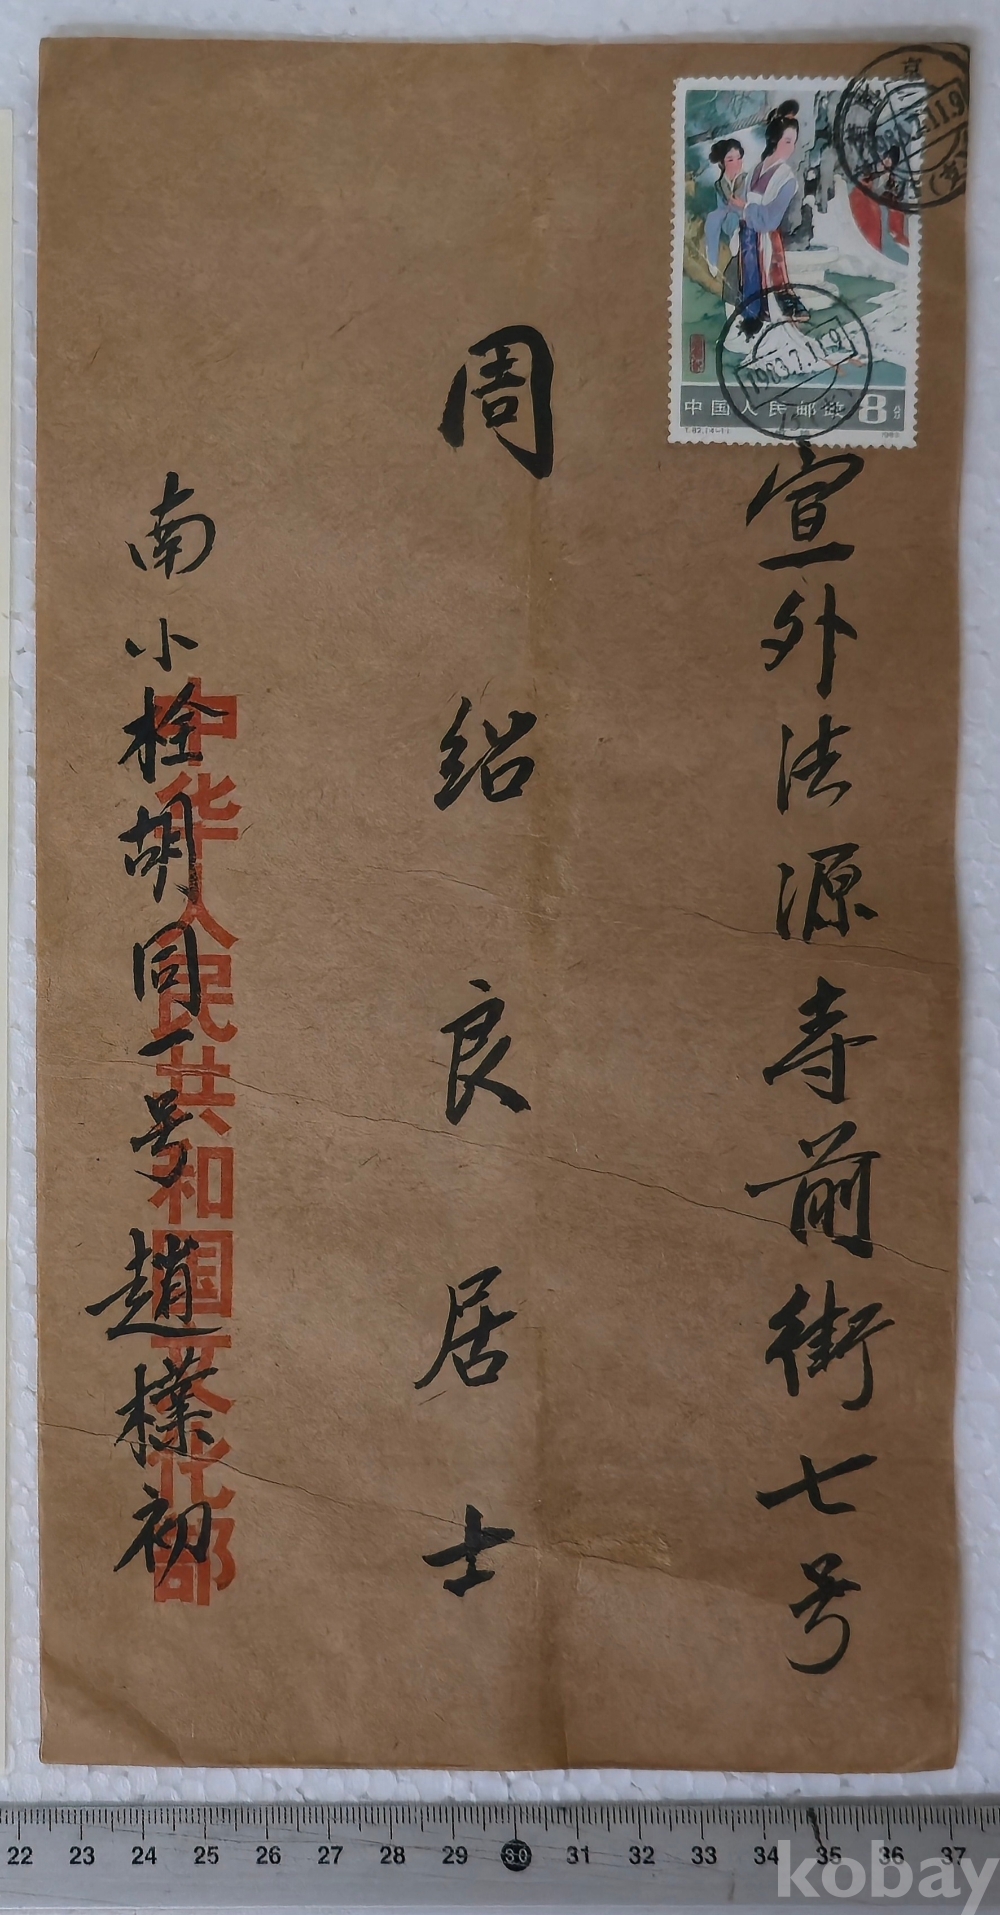 宣外法源寺前街七号
周绍良居士
南小栓胡同一号 趙樸初
中华人民共和国文化部
中国人民邮政 8分
T.82.(4-1)
1983.7.11.9
京
22 23 24 25 26 27 28 29 30 31 32 33 34 35 36 37
kobay